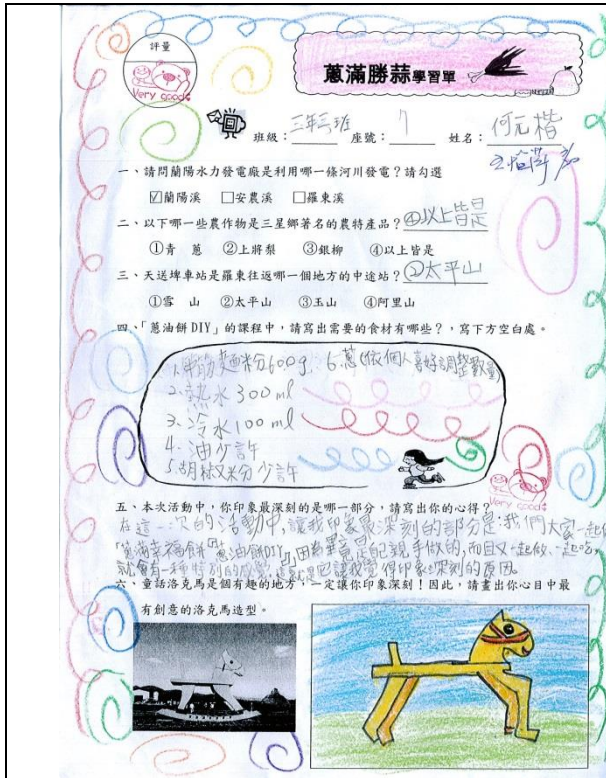 評量
Very good
蔥滿勝蒜學習單
班級：三年三班 座號：7 姓名：何元楷
一、請問蘭陽水力發電廠是利用哪一條河川發電？請勾選
☑蘭陽溪 □安農溪 □羅東溪
二、以下哪一些農作物是三星鄉著名的農特產品？④以上皆是
①青 蔥 ②上將梨 ③銀柳 ④以上皆是
三、天送埤車站是羅東往返哪一個地方的中途站？②太平山
①雪 山 ②太平山 ③玉山 ④阿里山
四、「蔥油餅 DIY」的課程中，請寫出需要的食材有哪些？，寫下方空白處。
1.中筋麵粉600g 6.蔥(依個人喜好調整數量)
2.熱水300ml
3.冷水100ml
4.油少許
5.胡椒粉少許
Very good
五、本次活動中，你印象最深刻的是哪一部分，請寫出你的心得？
在這一次的活動中，讓我印象最深刻的部分是：我們大家一起做
「蔥滿幸福餅」「蔥油餅DIY」，因為畢竟是自己親手做的，而且又一起做、一起吃，
就會有一種特別的感覺，這就是讓我覺得印象深刻的原因。
六、童話洛克馬是個有趣的地方，一定讓你印象深刻！因此，請畫出你心目中最
有創意的洛克馬造型。